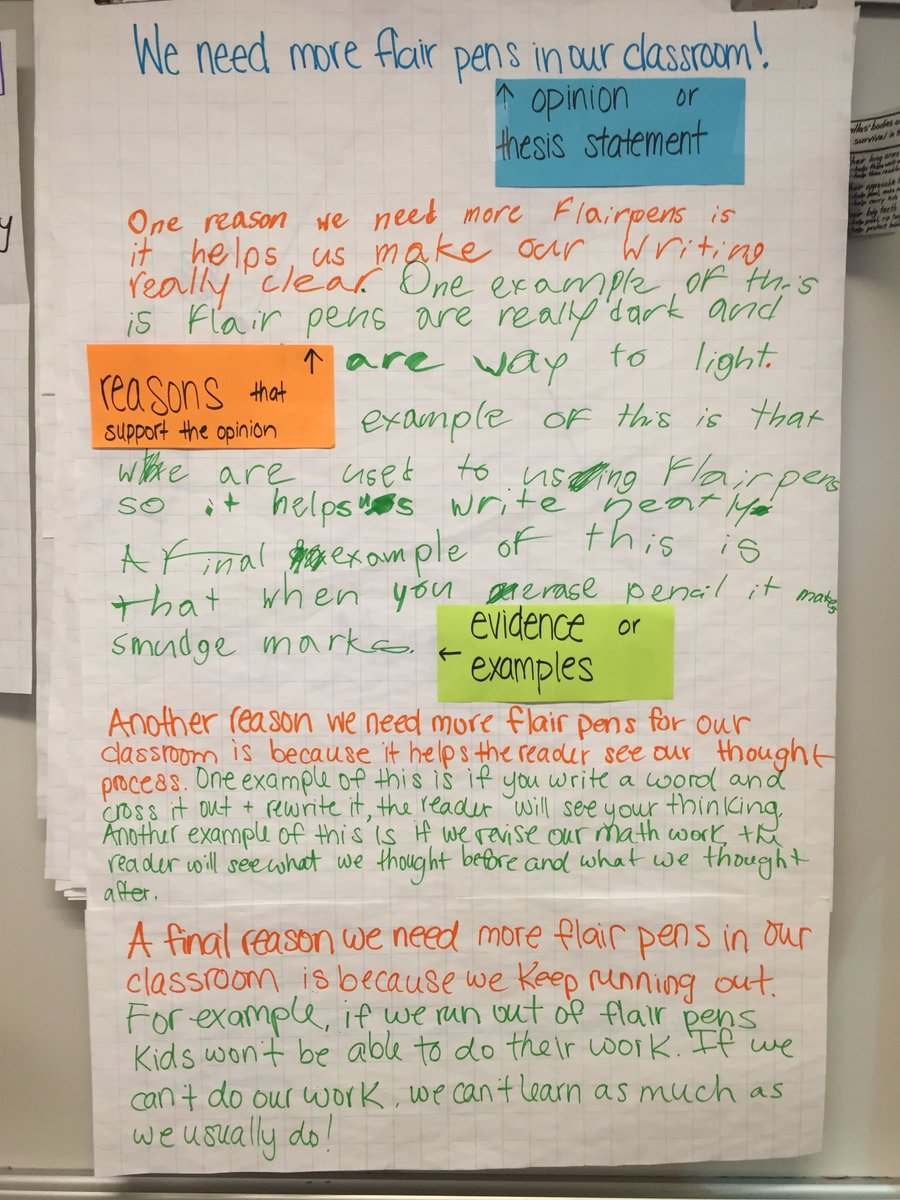 We need more flair pens in our classroom!
↑ opinion or
thesis statement
One reason we need more Flairpens is
it helps us make our writing
really clear. One example of this
is Flair pens are really dark and
are way to light.
↑
reasons that
support the opinion
example of this is that
we are used to using Flairpens
so it helps us write neatly
A Final example of this is
that when you erase pencil it makes
smudge marks.
evidence or
← examples
Another reason we need more flair pens for our
classroom is because it helps the reader see our thought
process. One example of this is if you write a word and
cross it out + rewrite it, the reader will see your thinking.
Another example of this is if we revise our math work, the
reader will see what we thought before and what we thought
after.
A final reason we need more flair pens in our
classroom is because we keep running out.
For example, if we run out of flair pens
kids won't be able to do their work. If we
can't do our work, we can't learn as much as
we usually do!
survival in